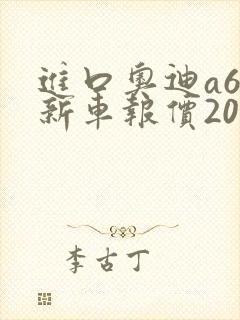 進口奧迪a6
新車報價20
李古丁